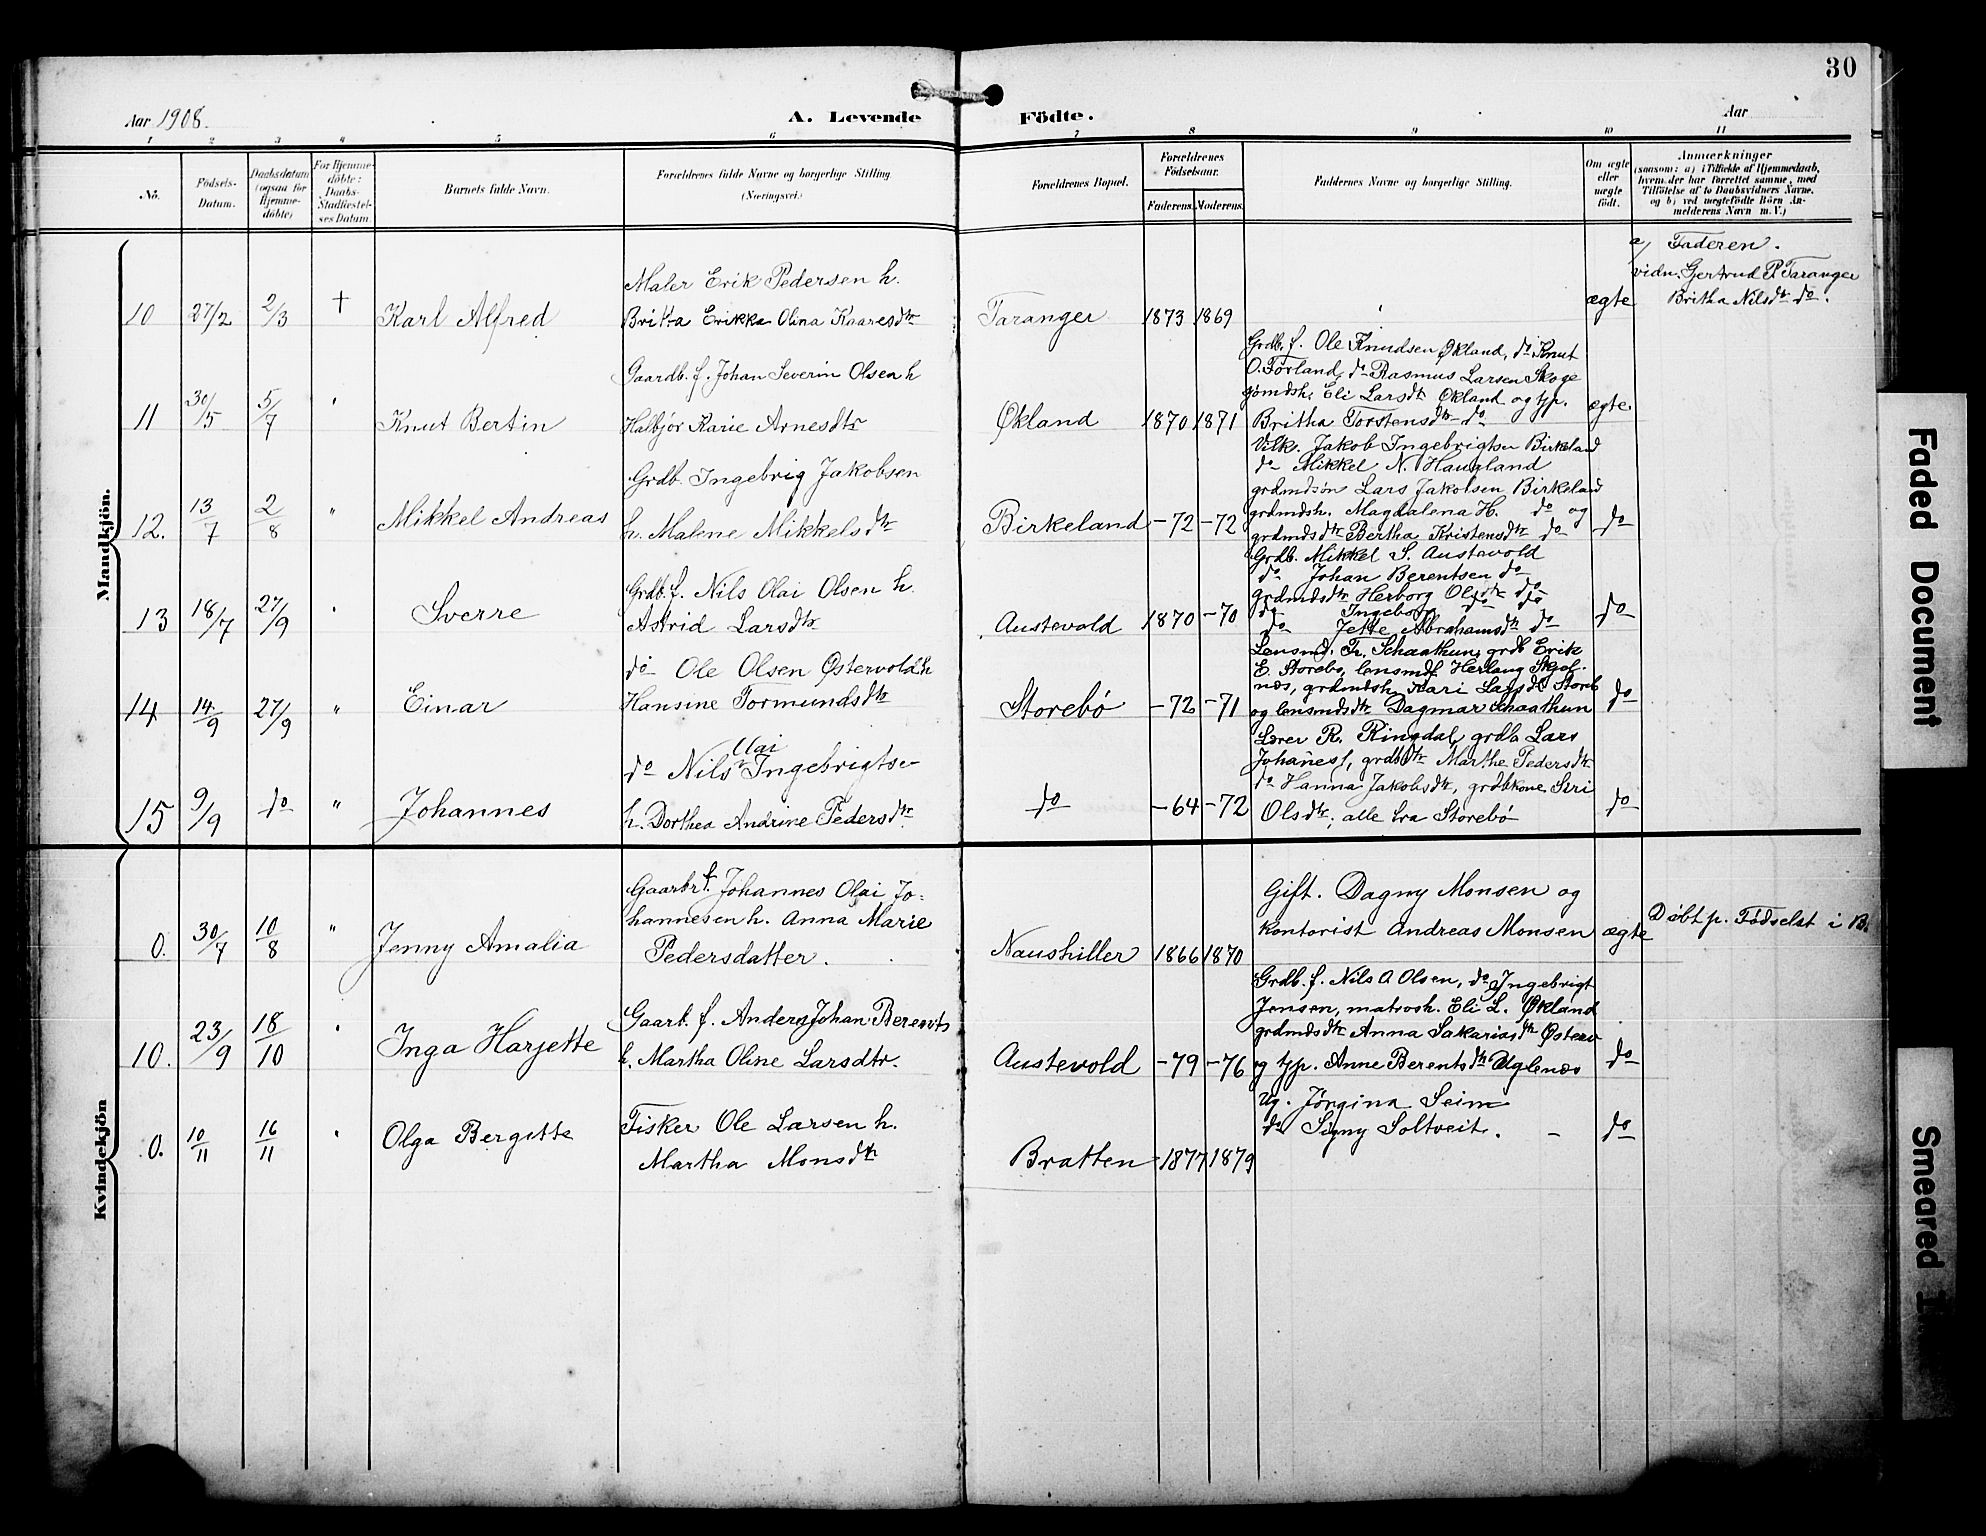 30
Aar 1908.
A. Levende Födte.
Aar
1 2 3 4 5 6 7 8 9 10 11
No.
Födsels-Datum.
Daabsdatum (ogsaa for Hjemme-döbte)
For Hjemme-döbte: Daabs-Stadfæstel-ses Datum.
Barnets fulde Navn.
Forældrenes fulde Navne og borgerlige Stilling.
(Næringsvei.)
Forældrenes Bopæl.
Forældrenes Födselsaar.
Faderens. Moderens.
Faddernes Navne og borgerlige Stilling.
Om ægte eller uægte födt.
Anmærkninger
(saasom: a) i Tilfælde af Hjemmedaab,
hvem der har forrettet samme, med
Tilföielse af to Daabsvidners Navne,
og b) ved uægtefödte Börn An-
melderens Navn m. V.)
Mandkjön.
a/ Faderen.
vidn. Gertrud P. Taranger
Britha Nilsdtr do.
Maler Erik Pedersen h.
10 27/2 2/3 † Karl Alfred Britha Erikka Olina Kaaresdtr Taranger 1873 1869 ægte
Gaardb. f. Johan Severin Olsen h
11 30/5 5/7 " Knut Bertin Halbjör Karie Arnesdtr Økland 1870 1871 ægte
Grdb. f. Ole Knudsen Økland, do Knut
O. Førland, do Rasmus Larsen Skoge
gjömdsh. Eli Larsdtr Økland og tjp.
Britha Torstensdtr do
Grdb. Ingebrig Jakobsen
12. 13/7 2/8 " Mikkel Andreas h. Malene Mikkelsdtr Birkeland -72 -72 do
Vilk. Jakob Ingebrigtsen Birkeland
do Mikkel N. Haugland
grdmdsön Lars Jakobsen Birkeland
grdmdsh. Magdalena H. do og
grdmdsdtr Bertha Kristensdtr do
Grdb. f. Nils Olai Olsen h.
13 18/7 27/9 " Sverre Astrid Larsdtr Austevold 1870 -70 do
Grdb. Mikkel S. Austevold
do Johan Berentsen do
grdmdsdtr Herborg Olsdtr do
do Ingeborg do do
do Jette Abrahamsdtr do
do Ole Olsen Østervold h
14 14/9 27/9 " Einar Hansine Tormundsdtr Storebö -72 -71 do
Lensmd. Fr. Schaathun, grdb Erik
E. Storebø, lensmdf Herlaug Skjel-
næs, grdmdsh. Kari Larsdtr Storeb
og lensmdsdtr Dagmar Schaathun
do Nils Olai Ingebrigtse-
15 9/9 do " Johannes h. Dorthea Andrine Pedersdtr. do -64 -72 do
Lærer R. Ringdal, grdb Lars
Johanes f, grdbdtr Marthe Pedersdtr
do Hanna Jakobsdtr, grdbkone Siri
Olsdtr, alle fra Storebö
Kvindekjön
Gaarbr f. Johannes Olai Jo-
hannesen h. Anna Marie
0. 30/7 10/8 " Jenny Amalia Pedersdatter. Naushiller 1866 1870 ægte
Gift. Dagny Monsen og
Kontorist Andreas Monsen
Döbt p. Födselst i B.
Gaarb. f. Anders Johan Berents
10. 23/9 18/10 " Inga Harjette h. Martha Oline Larsdtr. Austevold -79 -76 do
Grdb. f. Nils O Olsen, do Ingebrigt
Jensen, matrosh. Eli L. Økland
grdmdsdtr Anna Sakariasdtr Østerv
og tjp. Anne Berentsdtr Uglenæs
Fisker Ole Larsen h.
0. 10/11 16/11 " Olga Bergitte Martha Monsdtr Bratten -1877 1879 do
Ug. Jörgina Seim
do Signy Soltveit. -
Faded Document
Smeared